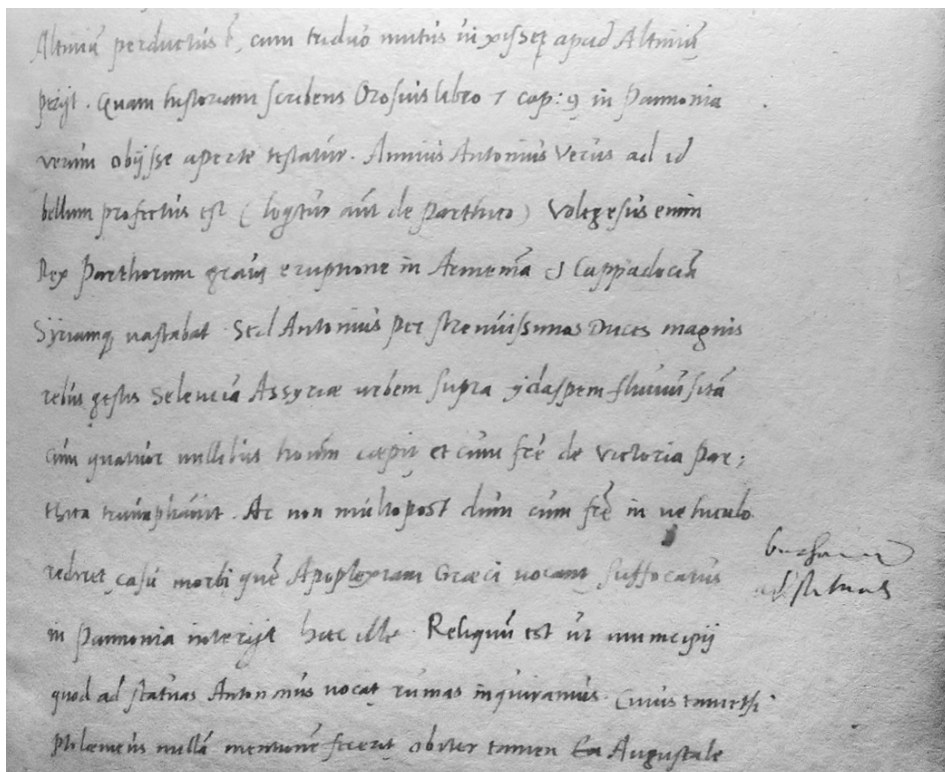 Altinũ perductus ẽ, cum triduo mutus vixisset apud Altinũ
perijt. Quam historiam scribens Orosius libro 7 cap: 9 in Pannonia
verum obijsse aperte testatur. Annius Antonius Verus ad id
bellum profectus est (loq̃tur aũt de Parthico) Volegesus enim
Rex Parthorum graui eruptione in Armeniã et Cappadociã
Syriamq; vastabat. Sed Antonius per strenuissimos Duces magnis
rebus gestis Seleuciã Assyriæ urbem supra ydaspem fluuiũ sitã
cum quatuor millibus hoĩum cæpit et cum frẽ de victoria Par;
thica triumphauit. Ac non multo post dum cum frẽ in vehiculo
rediret casu morbi quẽ Apoplexiam Græci vocant suffocatus
in Pannonia interijt hæc ille. Reliquũ est ut municipij
ad statuas
quod ad statuas Antoninus vocat ruinas inquiramus. Cuius tametsi
Ptolemeus nullã mentionẽ fecerit obiter tamen Ea Augustale